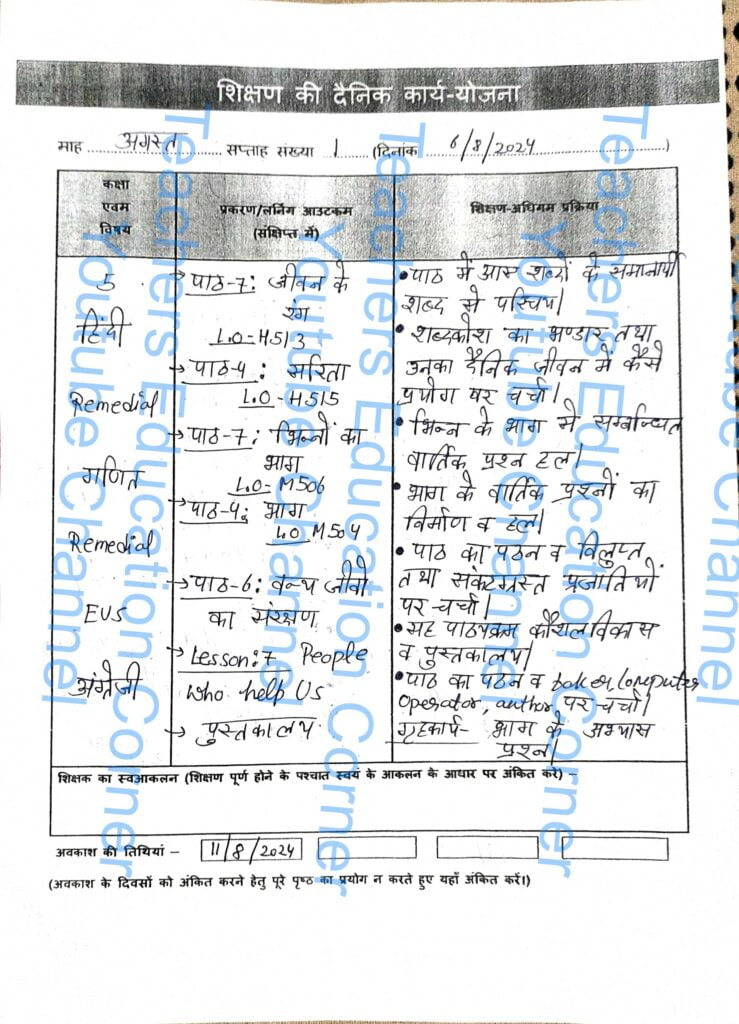 शिक्षण की दैनिक कार्य-योजना
माह अगस्त सप्ताह संख्या 1 (दिनांक 6/8/2024)
कक्षा एवम विषय
प्रकरण/लर्निंग आउटकम (संक्षिप्त में)
शिक्षण-अधिगम प्रक्रिया
5
हिंदी
Remedial
गणित
Remedial
EVS
अंग्रेजी
→ पाठ-7: जीवन के
रंग
L.O-H513
→ पाठ-4: सरिता
L.O-H515
→ पाठ-7: भिन्नों का
भाग
L.O-M506
→ पाठ-4: भाग
LO M504
→ पाठ-6: वन्य जीवों
का संरक्षण
→ Lesson:7 People
who help Us
→ पुस्तकालय
• पाठ में आए शब्दों के समानार्थी
शब्द से परिचय।
• शब्दकोश का भण्डार तथा
उनका दैनिक जीवन में कैसे
प्रयोग पर चर्चा।
• भिन्न के भाग से सम्बन्धित
वार्तिक प्रश्न हल।
• भाग के वार्तिक प्रश्नों का
निर्माण व हल।
• पाठ का पठन व विलुप्त
तथा संकटग्रस्त प्रजातियों
पर चर्चा।
• सह पाठ्यक्रम कौशल विकास
व पुस्तकालय।
• पाठ का पठन व computer
operator, author, पर चर्चा।
गृहकार्य- भाग के अभ्यास
प्रश्न।
शिक्षक का स्वआकलन (शिक्षण पूर्ण होने के पश्चात स्वयं के आकलन के आधार पर अंकित करें) –
अवकाश की तिथियां – 11/8/2024
(अवकाश के दिवसों को अंकित करने हेतु पूरे पृष्ठ का प्रयोग न करते हुए यहाँ अंकित करें।)
Teachers Education Corner
Youtube Channel
Teachers Education Corner
Youtube Channel
Teachers Education Corner
Youtube Channel